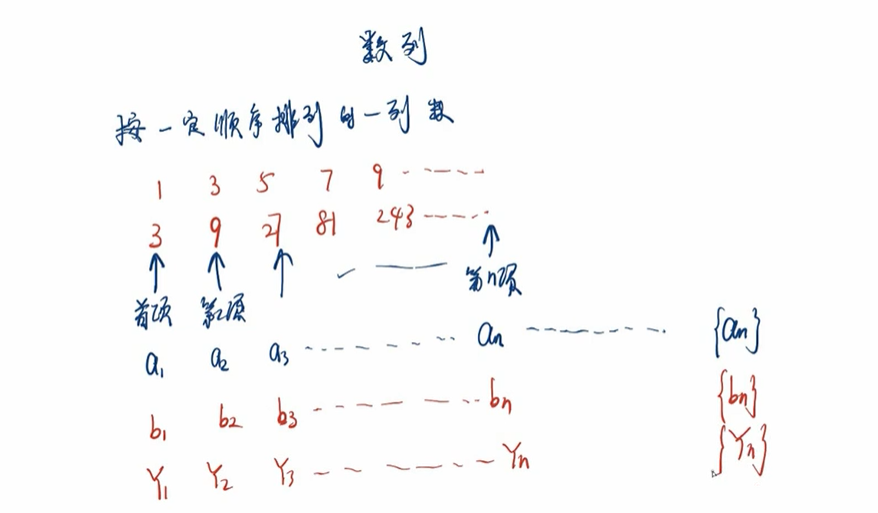 数列
按一定顺序排列的一列数
1 3 5 7 9 ······
3 9 27 81 243 ······
首项 第2项 第n项
a₁ a₂ a₃ ······ aₙ ······ {aₙ}
b₁ b₂ b₃ ······ bₙ {bₙ}
Y₁ Y₂ Y₃ ······ Yₙ {Yₙ}